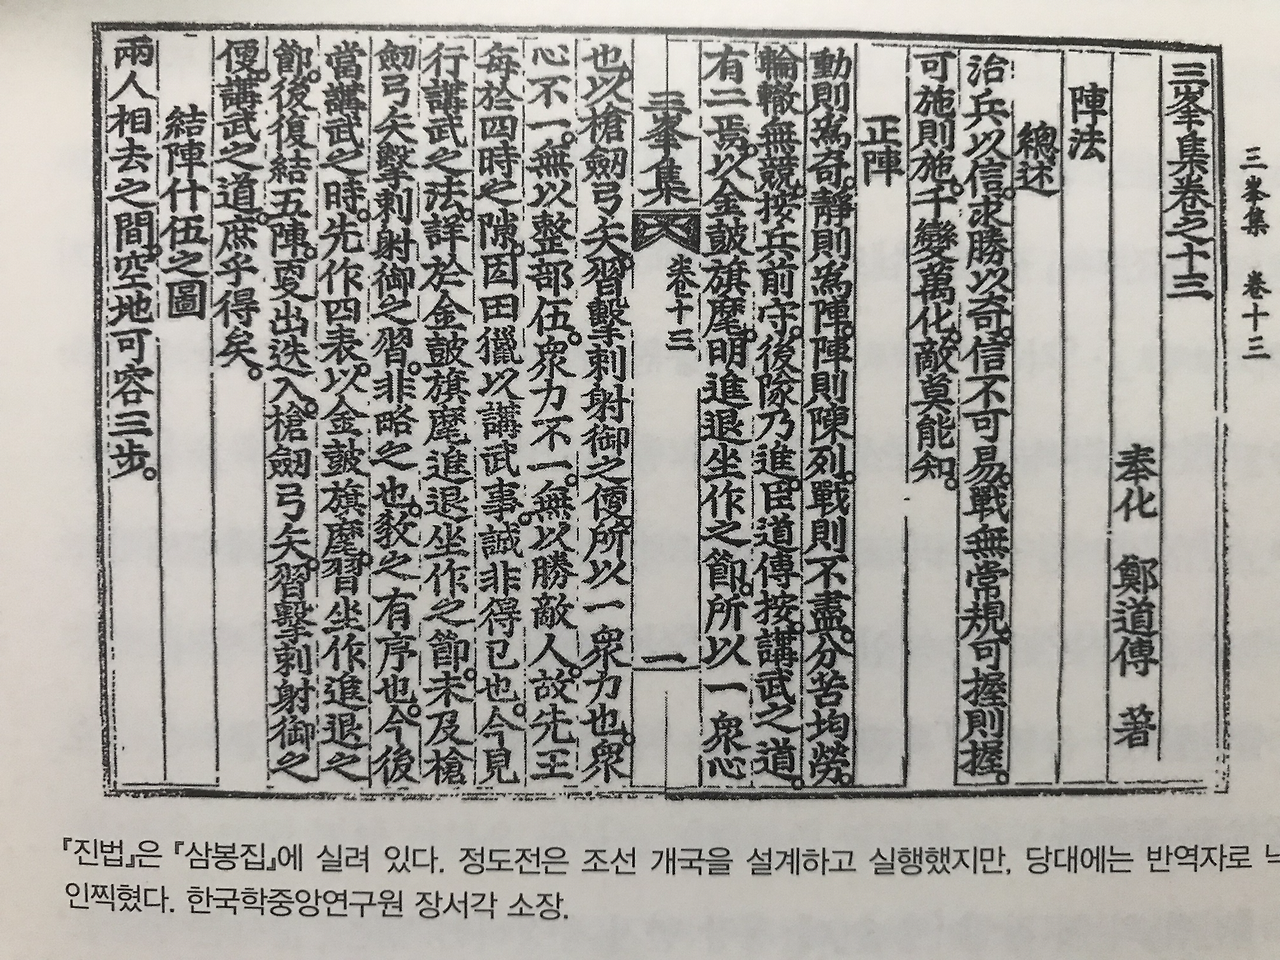 三峯集 卷十三
三峯集卷之十三
奉化 鄭道傳 著
陣法
總述
治兵以信。求勝以奇。信不可易。戰無常規。可握則握。
可施則施。千變萬化。敵莫能知。
正陣
動則爲奇。靜則爲陣。陣則陳列。戰則不盡。分苦均勞。
輪轍無競。按兵前守。後隊乃進。臣道傳按。講武之道。
有二焉。以金鼓旗麾。明進退坐作之節。所以一衆心
三峯集 卷十三 一
也。以槍劒弓矢。習擊刺射御之便。所以一衆力也。衆
心不一。無以整部伍。衆力不一。無以勝敵人。故先王
每於四時之隙。因田獵以講武事。誠非得已也。今見
行講武之法。詳於金鼓旗麾進退坐作之節。未及槍
劒弓矢擊刺射御之習。非略之也。敎之有序也。今後
當講武之時。先作四表。以金鼓旗麾。習坐作進退之
節。後復結五陣。更出迭入。槍劒弓矢。習擊刺射御之
便。講武之道。庶乎得矣。
結陣什伍之圖
兩人相去之間。空地可容三步。
『진법』은 『삼봉집』에 실려 있다. 정도전은 조선 개국을 설계하고 실행했지만, 당대에는 반역자로 낙
인찍혔다. 한국학중앙연구원 장서각 소장.